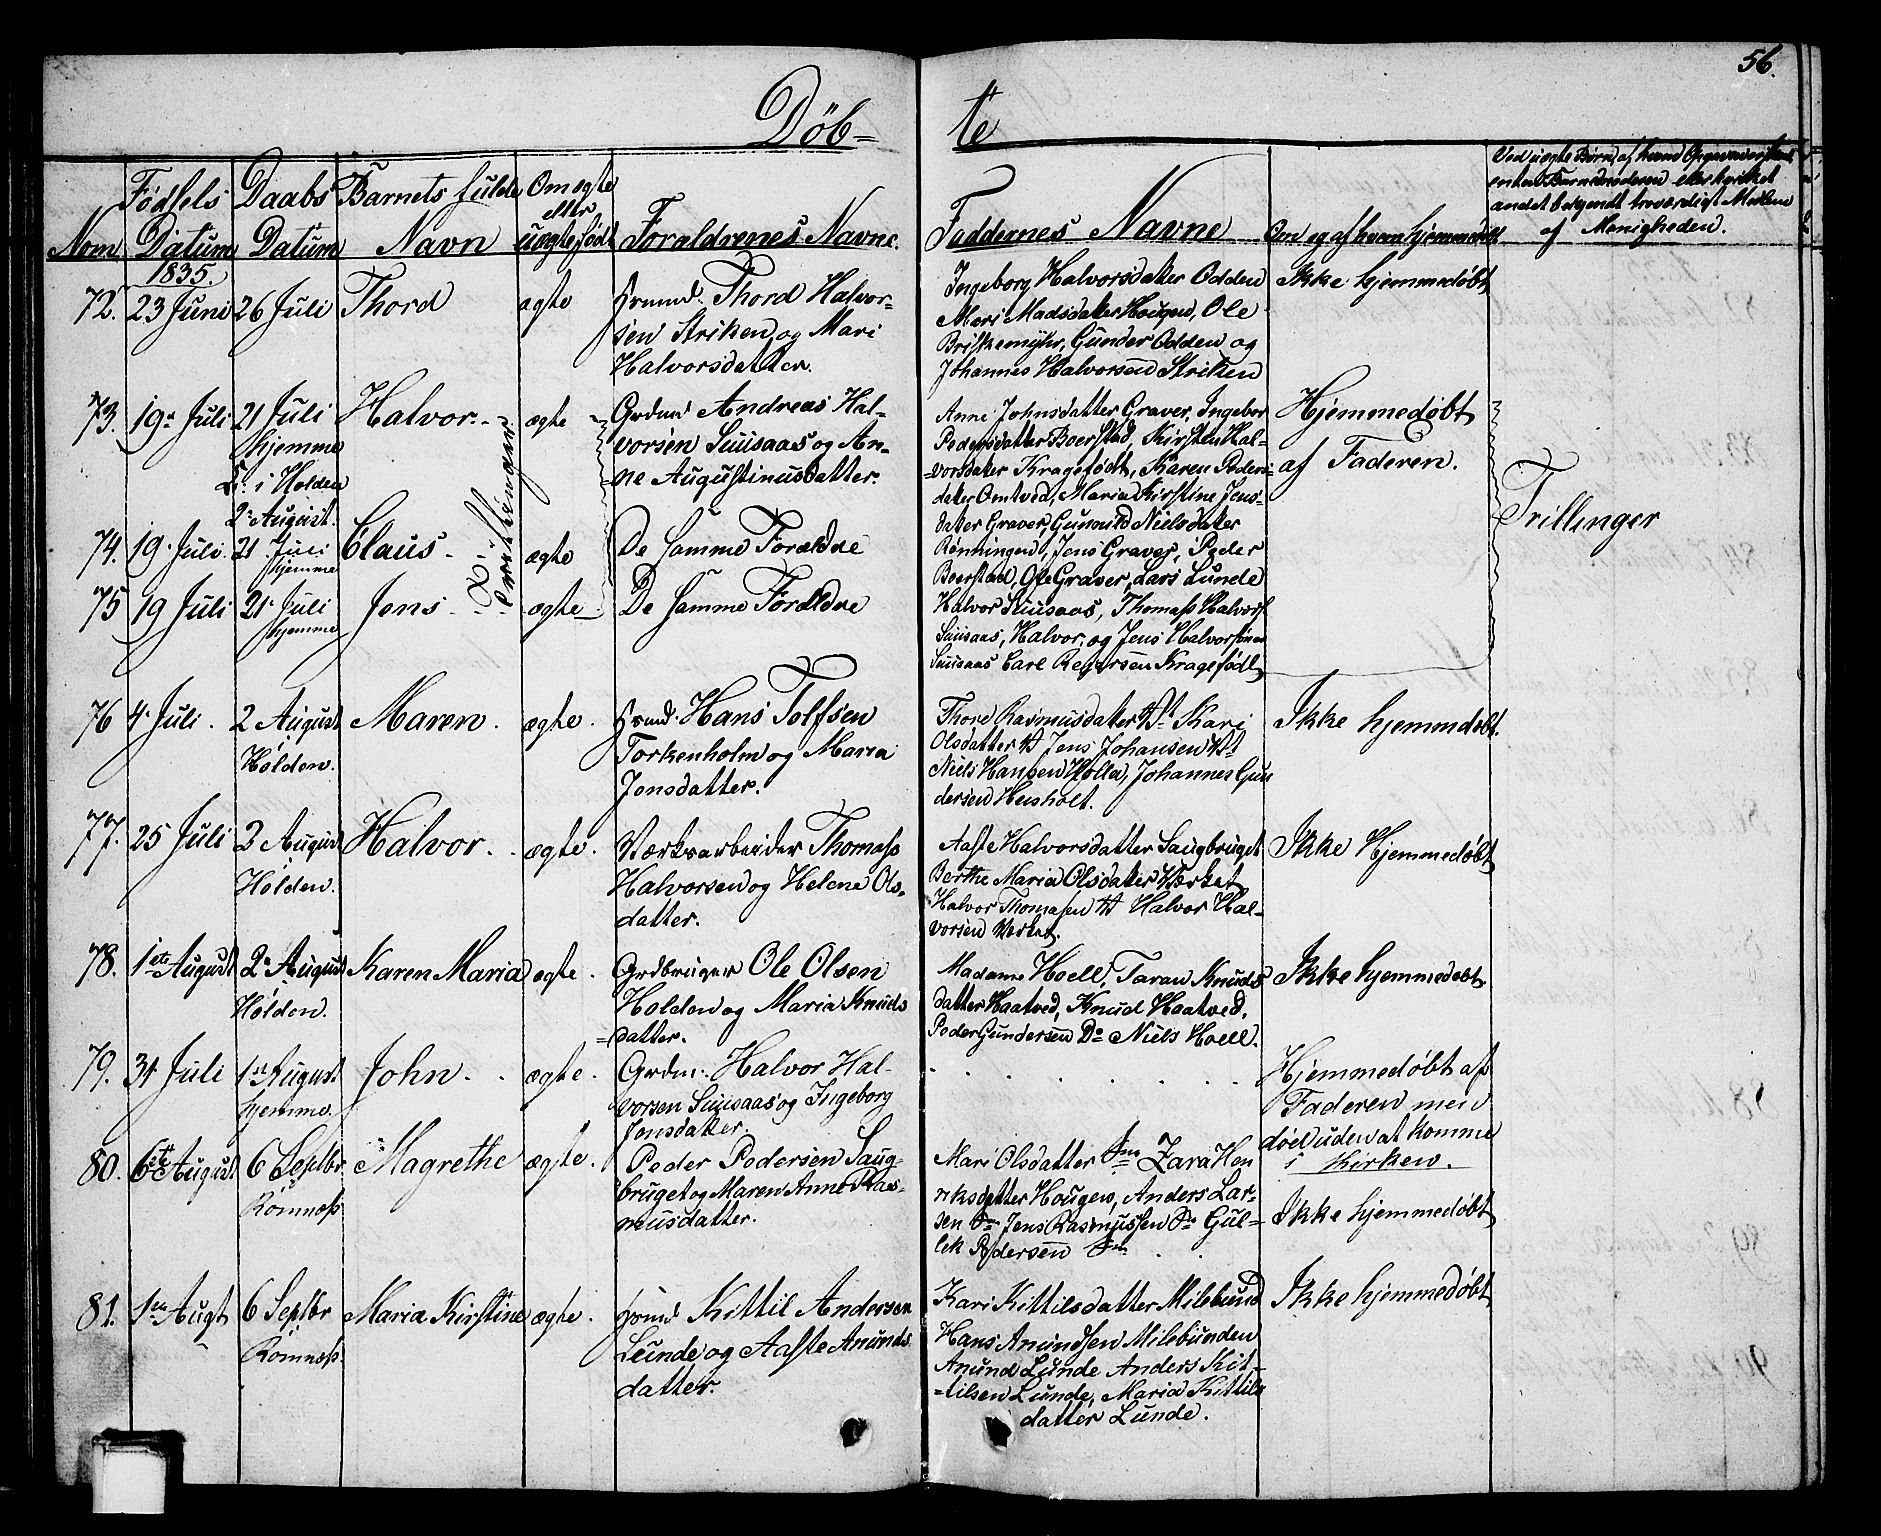 56.
Döb=
te
Nom.
Födsels Datum
Daabs Datum
Barnets fulde Navn
Om ægte eller uægtefödt
Forældrenes Navne.
Faddernes Navne
Om og af hvem hjemmedöbt
Ved uægte Börn, af hvem Opgaven er skeet
enten Barnemoderen eller hvilket
andet bekjendt troværdigt Medlem
af Menigheden.
1835.
72. 23 Juni 26 Juli Thord ægte
Huusmd. Thord Halvor=
sen Striken og Mari
Halvorsdatter.
Ingeborg Halvorsdater Odden
Mari Madsdater Hougen, Ole
Briskemyhr, Gunder Odden og
Johannes Halvorsen Striken
Ikke hjemmedöbt
73. 19de Juli 21 Juli hjemme
i Holden
2 August.
Halvor. ægte
Grdmd Andreas Hal=
vorsen Suusaas og An=
ne Augustinusdatter.
Anne Johnsdatter Graver, Ingebor
Pedersdatter Boerstad, Kirsten Hal=
vorsdater Kragefödt, Karen Peders=
dater Omtved, Maria Kirstine Jens=
dater Graver, Gunnild Nielsdater
Rönningen, Jens Graver, Peder
Boerstad, Ole Graver, Lars Lunde
Halvor Suusaas, Thomass Halvors
Suusaas, Halvor, og Jens Halvorsöner
Suusaas Carl Kragefödt
Hjemmedöbt
af Faderen.
Trillinger
74. 19 Juli 21 Juli hjemme Claus. ægte
De samme Forældre
75 19 Juli 21 Juli hjemme Jens ægte
De samme Forældre
76 4 Juli. 2 August Holden. Maren. ægte.
Hans Tolfsen
Torkenholm og Maria
Jonsdatter.
Thore Rasmusdater Kari
Olsdatter Jens Johansen
Niels Hansen Holla, Johannes Gun
dersen Heisholt.
Ikke hjemmdöbt.
77. 25 Juli 2 August Holden. Halvor. ægte.
Værksarbeider Thomass
Halvorsen og Helene Ols=
datter.
Aaste Halvorsdatter Saugbruget
Berthe Maria Olsdater Værket
Halvor Thomasen Halvor Hal=
vorsen Værket.
Ikke Hjemmedöbt
78. 1ste August 2 August Holden. Karen Maria ægte.
Grdbruger Ole Olsen
Holden og Maria Knuds
=datter.
Madame Hoell, Taran Knuds
datter Haatved, Knud Haatved,
Peder Gundersen Do Niels Hoell.
Ikke hjemmedöbt
79. 31 Juli 1ste August hjemme. John. ægte.
Grdm. Halvor Hal=
vorsen Suusaas og Ingeborg
Jonsdatter.
Hjemmedöbt af
Faderen men
döe uden at komme
i Kirken.
80. 6te August 6 Septbr. Romnæss Magrethe ægte.
Peder Pedersen Saug=
bruget og Maren Anne Ras=
musdatter.
Mari Olsdatter Zara Hen
riksdatter Hougen, Anders Lar=
sen Jens Rasmussen Gul=
lek Pedersen
Ikke hjemmedöbt
81. 1ste Augt 6 Septbr Romnæss. Maria Kirstine ægte.
Huusmd Kittil Andersen
Lunde og Aaste Anunds
datter.
Kari Kittilsdatter Milebund
Hans Anundsen Milebunden
Anund Lunde Anders Kit=
=tilsen Lunde, Maria Kittils
datter Lunde.
Ikke hjemmedöbt